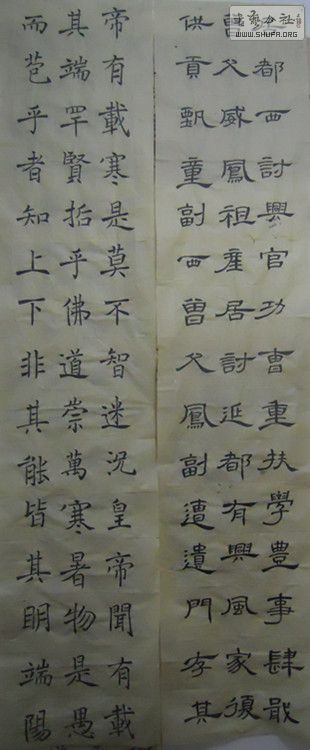 WWW.SHUFA.ORG
都西討興官功曹重扶學豊事肆
父威鳳祖産居討延都有興風家復
供貢甄童副西曽父鳳副遭遺門李其
帝有載寒是莫不智迷況皇帝聞有載
其端罕賢括乎佛道崇萬寒暑物是愚
而苞乎者知上下非其能皆其明端陽